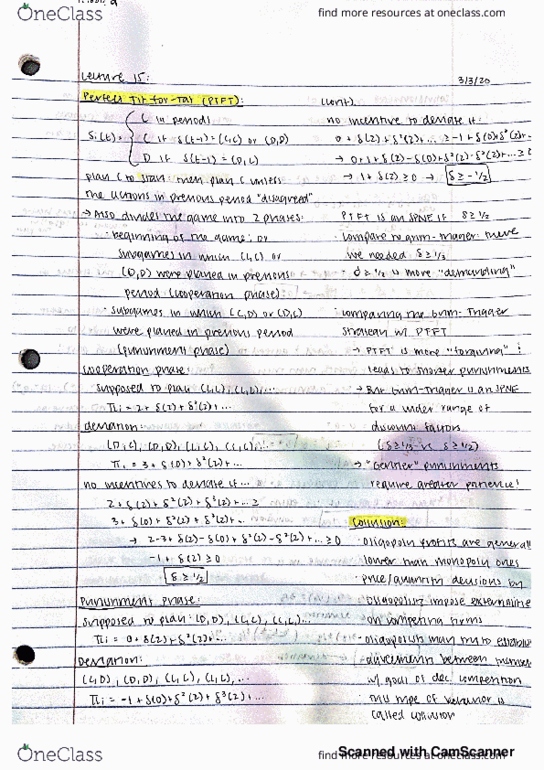 OneClass
find more resources at oneclass.com
Lecture 15:
3/3/20
Perfect Tit-for-Tat (PTFT):
Si(t) =
C in period 1
C if s(t-1) = (C,C) or (D,D)
D if s(t-1) = (D,C)
play C to start then play C unless
the actions in previous period "disagreed"
→ Also divides the game into 2 phases:
· beginning of the game; or
subgames in which (C,C) or
(D,D) were played in previous
period (cooperation phase)
· subgames in which (C,D) or (D,C)
were played in previous period
(punishment phase)
Cooperation phase:
supposed to play (C,C), (C,C), ...
πi = 2 + δ(2) + δ²(2) + ...
deviation:
(D,C), (D,D), (C,C), (C,C), ...
πi = 3 + δ(0) + δ²(2) + ...
no incentives to deviate if...
2 + δ(2) + δ²(2) + δ³(2) + ... ≥
3 + δ(0) + δ²(2) + δ³(2) + ...
→ 2-3 + δ(2) - δ(0) + δ²(2) - δ²(2) + ... ≥ 0
-1 + δ(2) ≥ 0
δ ≥ 1/2
Punishment phase:
supposed to play: (D,D), (C,C), (C,C) ...
πi = 0 + δ(2) + δ²(2) + ...
Deviation:
(C,D), (D,D), (C,C), (C,C), ...
πi = -1 + δ(0) + δ²(2) + δ³(2) + ...
(cont).
no incentive to deviate if:
0 + δ(2) + δ²(2) + ... ≥ -1 + δ(0) + δ²(2) + ..
→ 0+1 + δ(2) - δ(0) + δ²(2) - δ²(2) + ... ≥
→ 1 + δ(2) ≥ 0 → δ ≥ -1/2
PTFT is an SPNE if δ ≥ 1/2
· compare to grim-trigger: there
we needed δ ≥ 1/3
· δ ≥ 1/2 is more "demanding"
· comparing the Grim-Trigger
strategy w/ PTFT
→ PTFT is more "forgiving" :
leads to shorter punishments
→ But Grim-Trigger is an SPNE
for a wider range of
discount factors
(δ ≥ 1/3 vs δ ≥ 1/2)
→ "Gentler" punishments
require greater patience!
Collusion:
· oligopoly profits are general
lower than monopoly ones
· price/quantity decisions by
oligopolists impose externalitie
on competing firms
· oligopolists may try to establis
agreements between
w/ goal of dec. competition
· this type of behavior is
called collusion
OneClass
find more resources at oneclass.com
Scanned with CamScanner